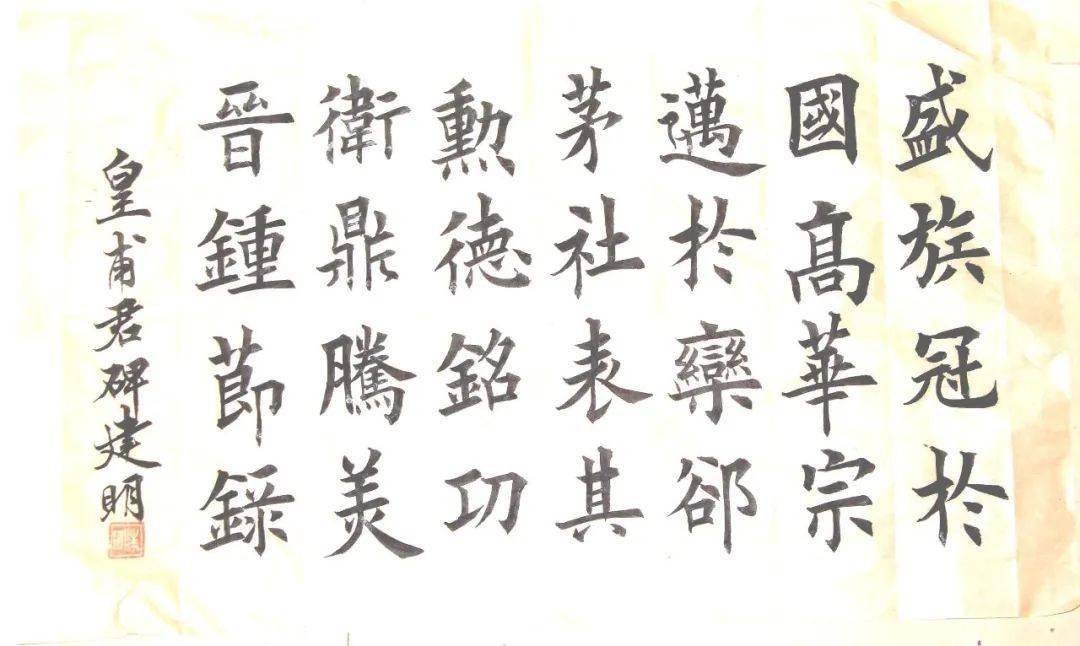 盛族冠於
國高華宗
邁於欒郤
茅社表其
勲德銘功
衛鼎騰美
晉鍾莭錄
皇甫君碑建明